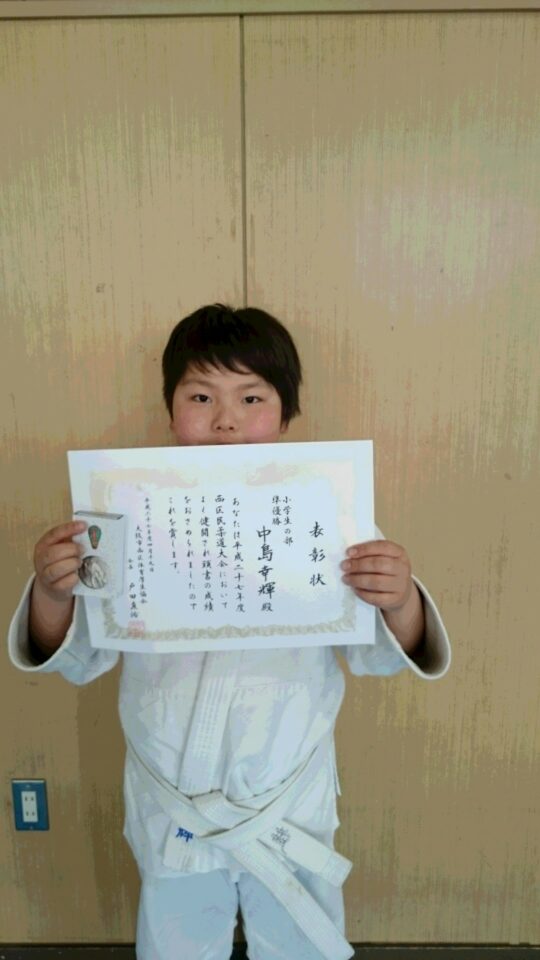 表彰状
小学生の部
準優勝
中島幸輝殿
あなたは平成二十七年度
西区民柔道大会において
よく健闘され頭書の成績
をおさめられましたので
これを賞します。
平成二十七年四月二十九日
大阪市西区体育厚生協会
会長 戸田